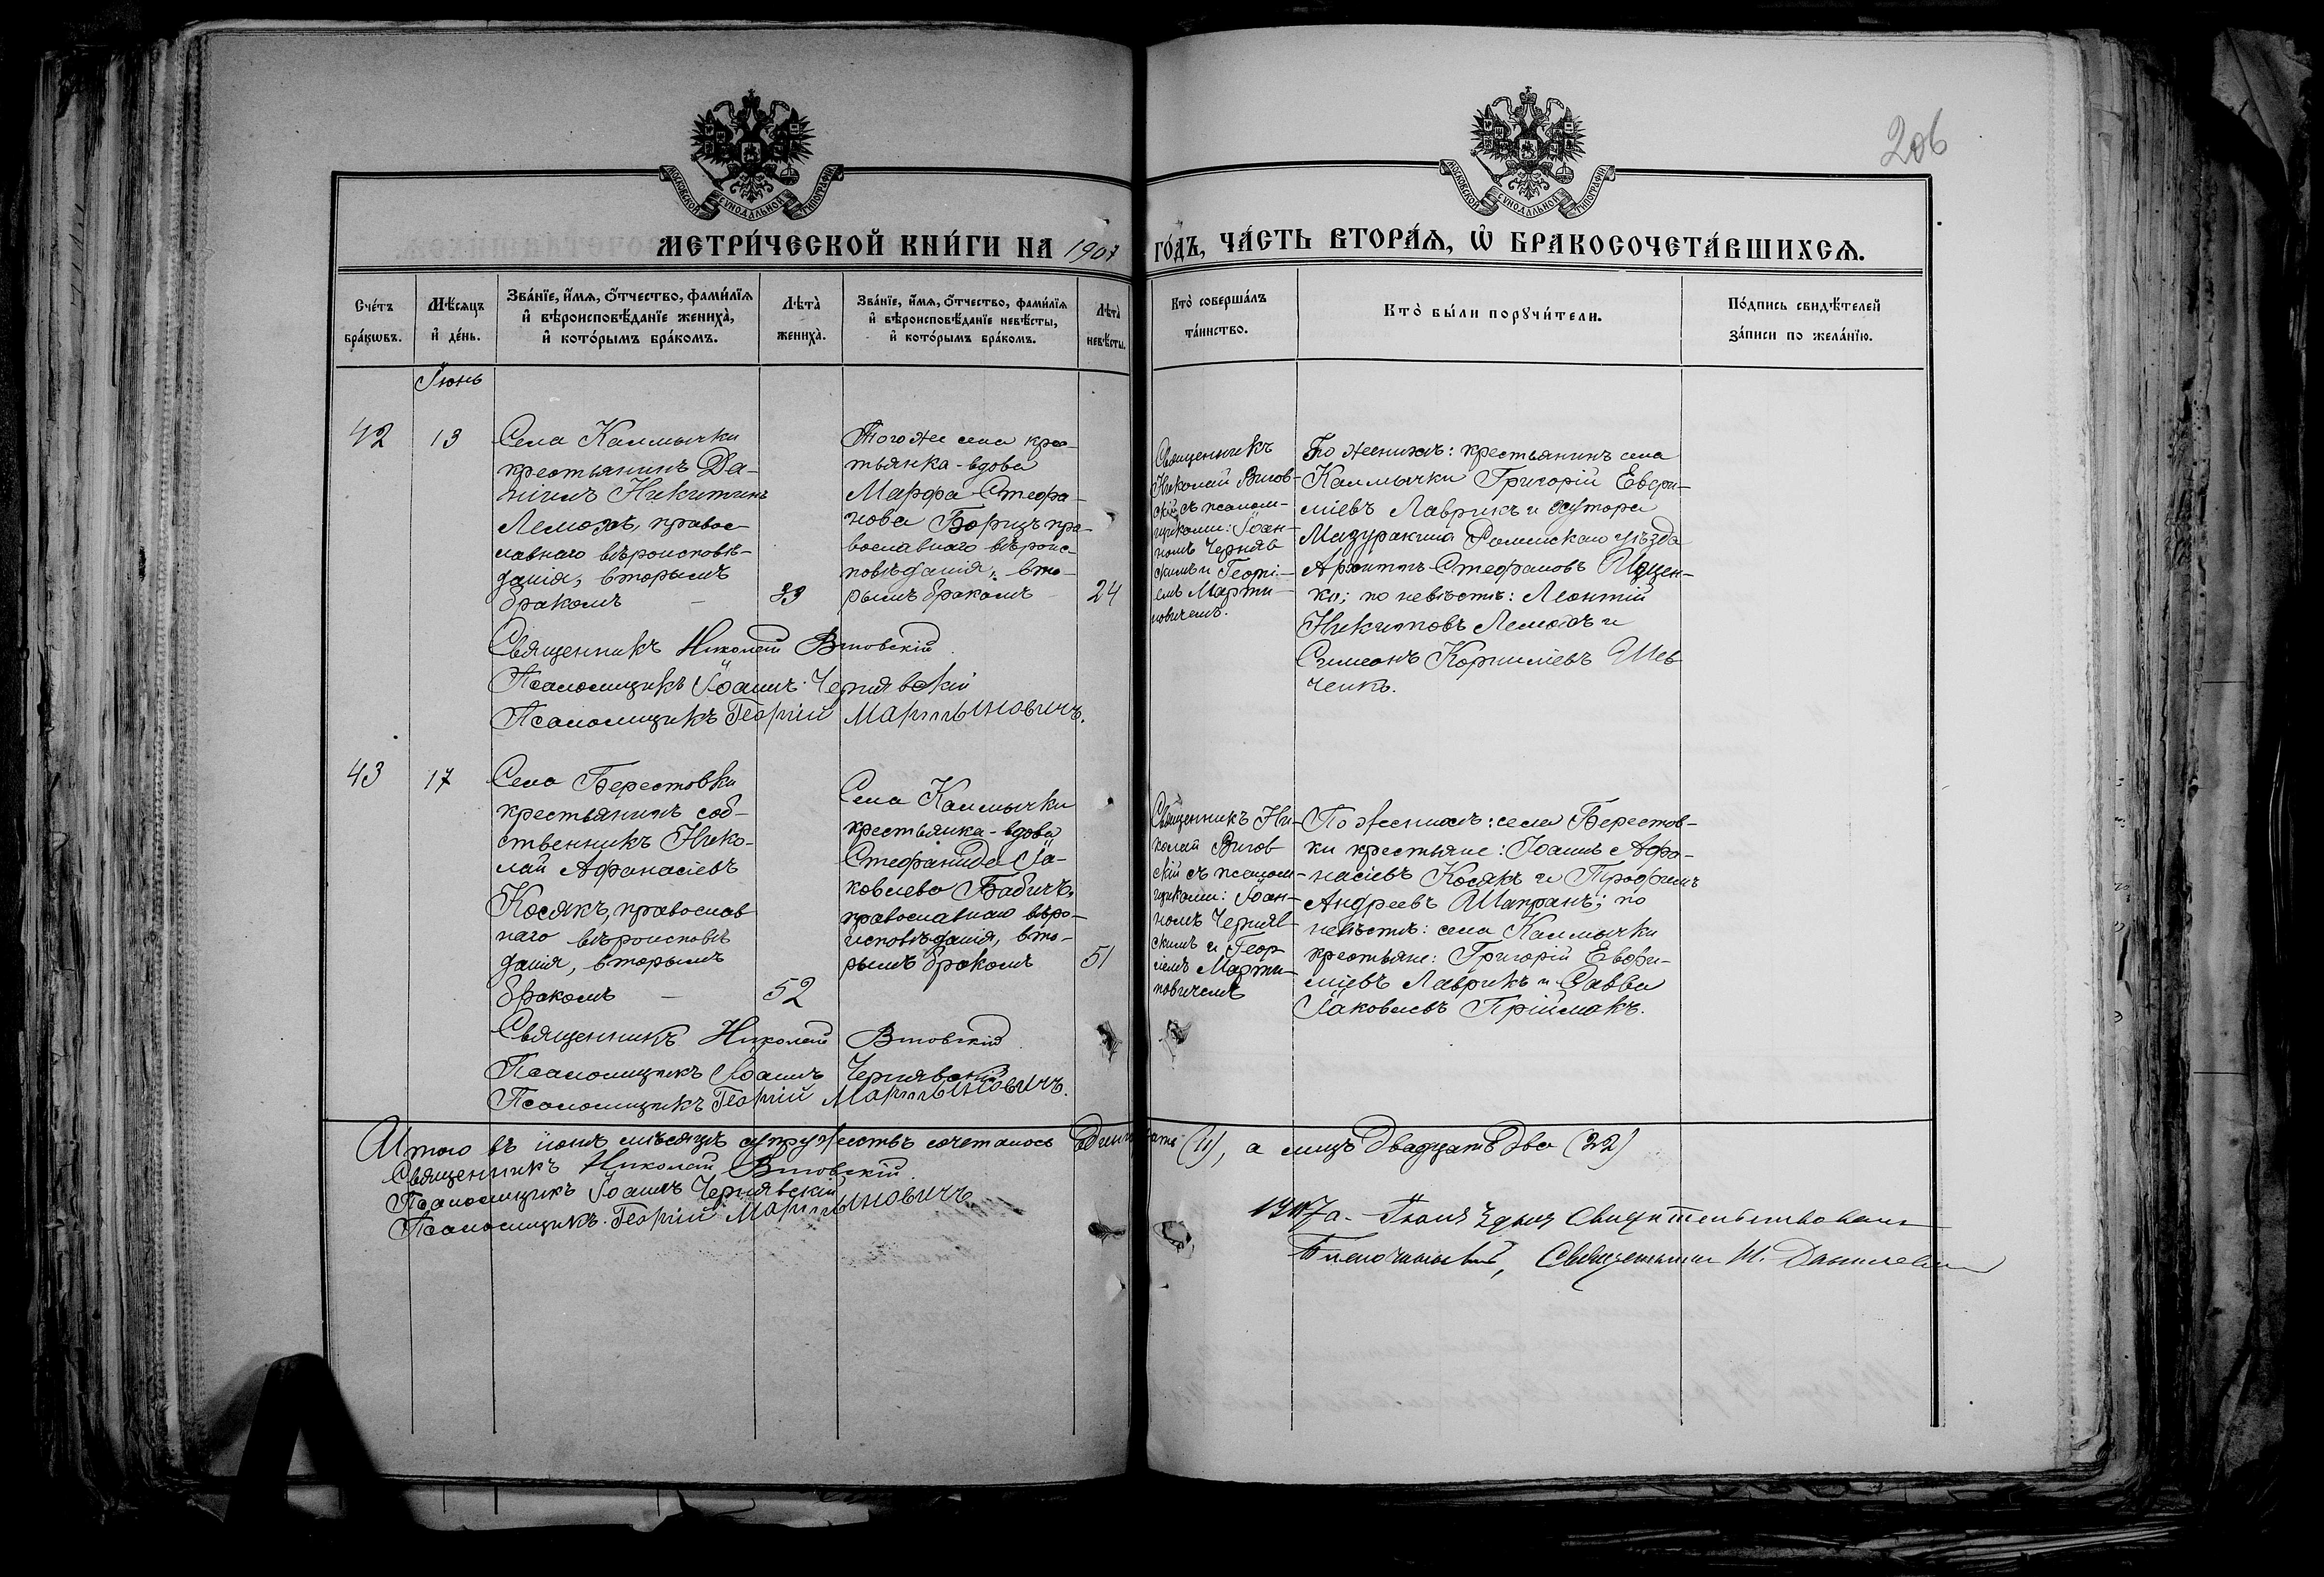 206
МОСКОВСКОЙ СУНОДАЛЬНОЙ ТИПОГРАФІИ
МОСКОВСКОЙ СУНОДАЛЬНОЙ ТИПОГРАФІИ
МЕТРИ́ЧЕСКОЙ КНИ́ГИ НА 1907 ГО́ДЪ, ЧА́СТЬ ВТОРА́Ѧ, Ѡ҆ БРАКОСОЧЕТА́ВШИХСѦ.
Сче́тъ
бра́кѡвъ.
Мѣ́сѧцъ
и҆ де́нь.
Зва́нїе, и҆́мѧ, ѻ҆́тчество, фами́лїѧ
и҆ вѣроисповѣ́данїе жениха̀,
и҆ кото́рымъ бра́комъ.
Лѣта̀
жениха̀.
Зва́нїе, и҆́мѧ, ѻ҆́тчество, фами́лїѧ
и҆ вѣроисповѣ́данїе невѣ́сты,
и҆ кото́рымъ бра́комъ.
Лѣта̀
невѣ́сты.
Кто̀ соверша́лъ
та́инство.
Кто̀ бы́ли порꙋчи́тели.
По́дпись свидѣ́телей
за́писи по жела́нїю.
Іюнь
42
13
Села Калмычки
крестьянинъ Да-
ніилъ Никитинъ
Лемохъ, правос-
лавнаго вѣроисповѣ-
данія, вторымъ
бракомъ
39
Того же села крес-
тьянка-вдова
Марфа Стефа-
нова Борицъ пра-
вославнаго вѣроис-
повѣданія, вто-
рымъ бракомъ
24
Священникъ
Николай Витов-
скій съ псалом-
щиками: Іоан-
номъ Черняв-
скимъ и Георгі-
емъ Марти-
новичемъ.
По женихѣ: крестьянинъ села
Калмычки Григорій Евфи-
міевъ Лаврикъ и хутора
Мазуракина Роменскаго уѣзда
Стефановъ Ищен-
ко; по невѣстѣ: Леонтій
Никитовъ Лемохъ и
Симеонъ Корниліевъ Шев-
ченко.
Священникъ Николай Витовскій
Псаломщикъ Іоаннъ Чернявскій
Псаломщикъ Георгій Мартыновичъ.
43
17
Села Берестовки
крестьянинъ соб-
ственникъ Нико-
лай Афанасіевъ
Косякъ, православ
наго вѣроисповѣ
данія, вторымъ
бракомъ
52
Села Калмычки
крестьянка-вдова
Стефанида Іа-
ковлева Бабичъ,
православнаго вѣро-
исповѣданія, вто-
рымъ бракомъ
51
Священникъ Ни-
колай Витов
скій съ псалом-
щиками: Іоан-
номъ Черняв-
скимъ и Геор
гіемъ Марти-
новичемъ
По женихѣ: села Берестов-
ки крестьяне: Іоаннъ Афа-
насіевъ Косякъ и Трофимъ
Андреевъ Шапранъ; по
невѣстѣ: села Калмычки
крестьяне: Григорій Евфи-
міевъ Лаврикъ и Савва
Іаковлевъ Пріймакъ.
Священникъ Николай Витовскій
Псаломщикъ Іоаннъ Чернявскій
Псаломщикъ Георгій Мартыновичъ.
Итого въ іюнѣ мѣсяцѣ супружествъ сочеталось одиннадцать (11), а лицъ двадцать два (22)
Священникъ Николай Витовскій
Псаломщикъ Іоаннъ Чернявскій
Псаломщикъ Георгій Мартыновичъ
1907 г.